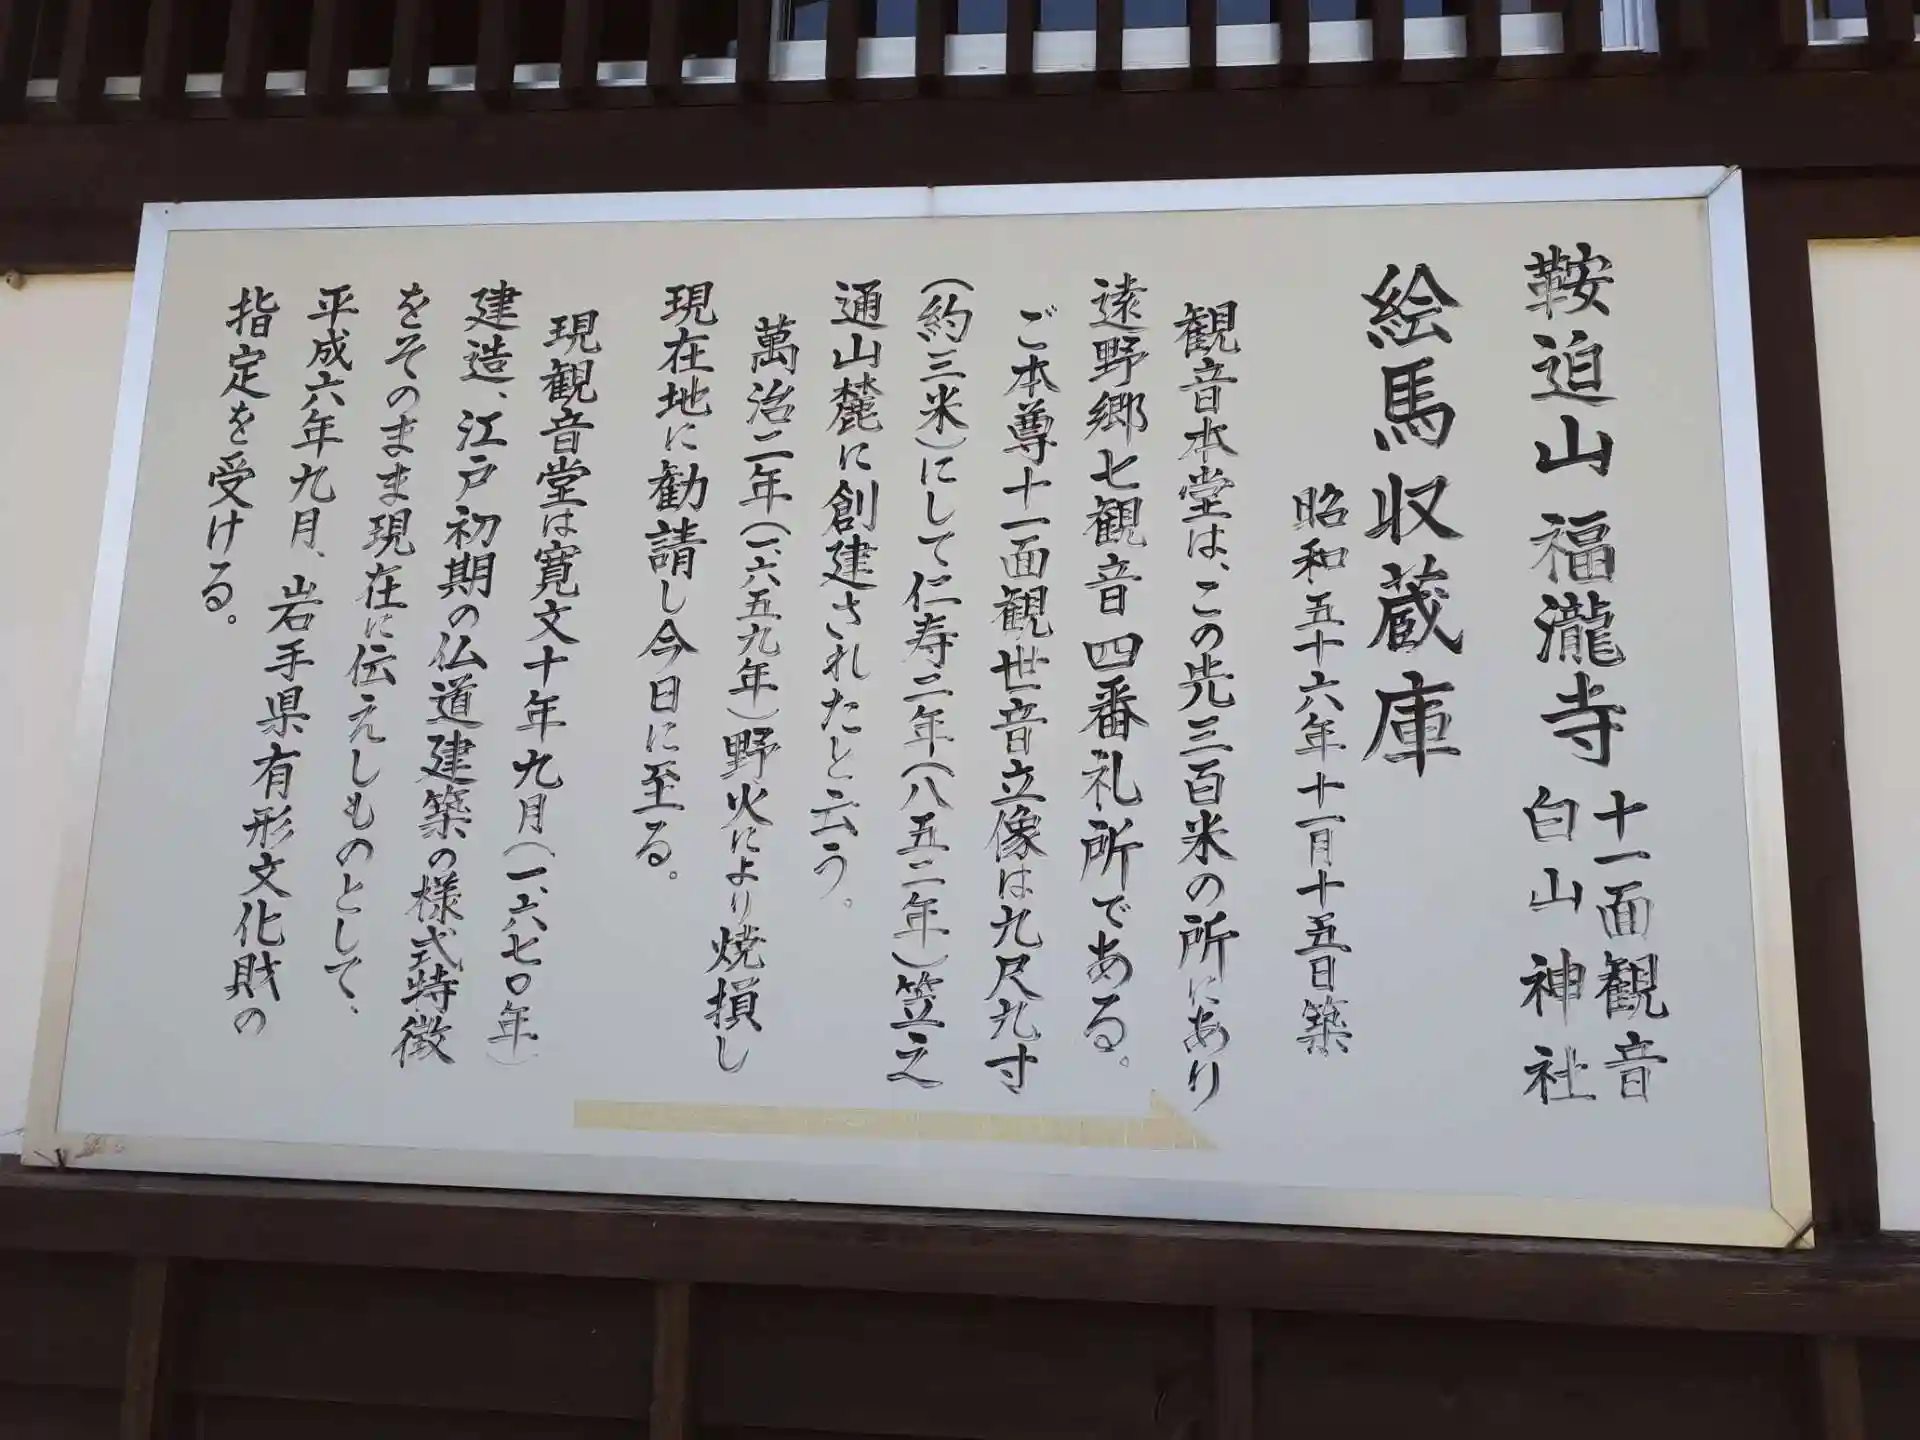 鞍迫山福瀧寺 十一面観音
白山神社
絵馬収蔵庫
昭和五十六年十一月十五日築
観音本堂は、この先三百米の所にあり
遠野郷七観音四番礼所である。
ご本尊十一面観世音立像は九尺九寸
(約三米)にして仁寿二年(八五二年)笠之
通山麓に創建されたと云う。
萬治二年(一、六五九年)野火により焼損し
現在地に勧請し今日に至る。
現観音堂は寛文十年九月(一、六七〇年)
建造、江戸初期の仏道建築の様式特徴
をそのまま現在に伝えしものとして、
平成六年九月、岩手県有形文化財の
指定を受ける。